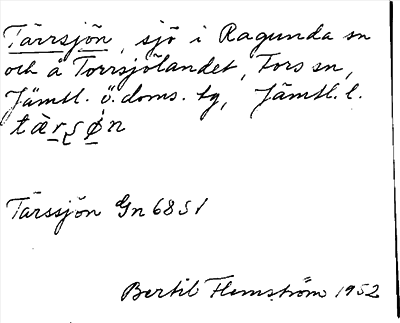 Tärrsjön, sjö i Ragunda sn
och å Torrsjölandet, Fors sn,
Jämtl. ö. doms. tg, Jämtl. l.
tὰrʂø̀n
Tärssjön Gn 68 S1
Bertil Flemström 1952